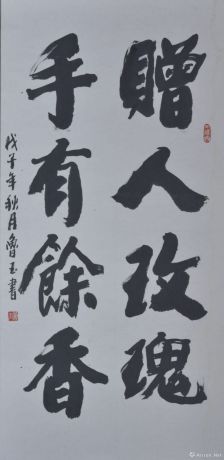 贈人玫瑰
手有餘香
戊子年秋月魯玉書